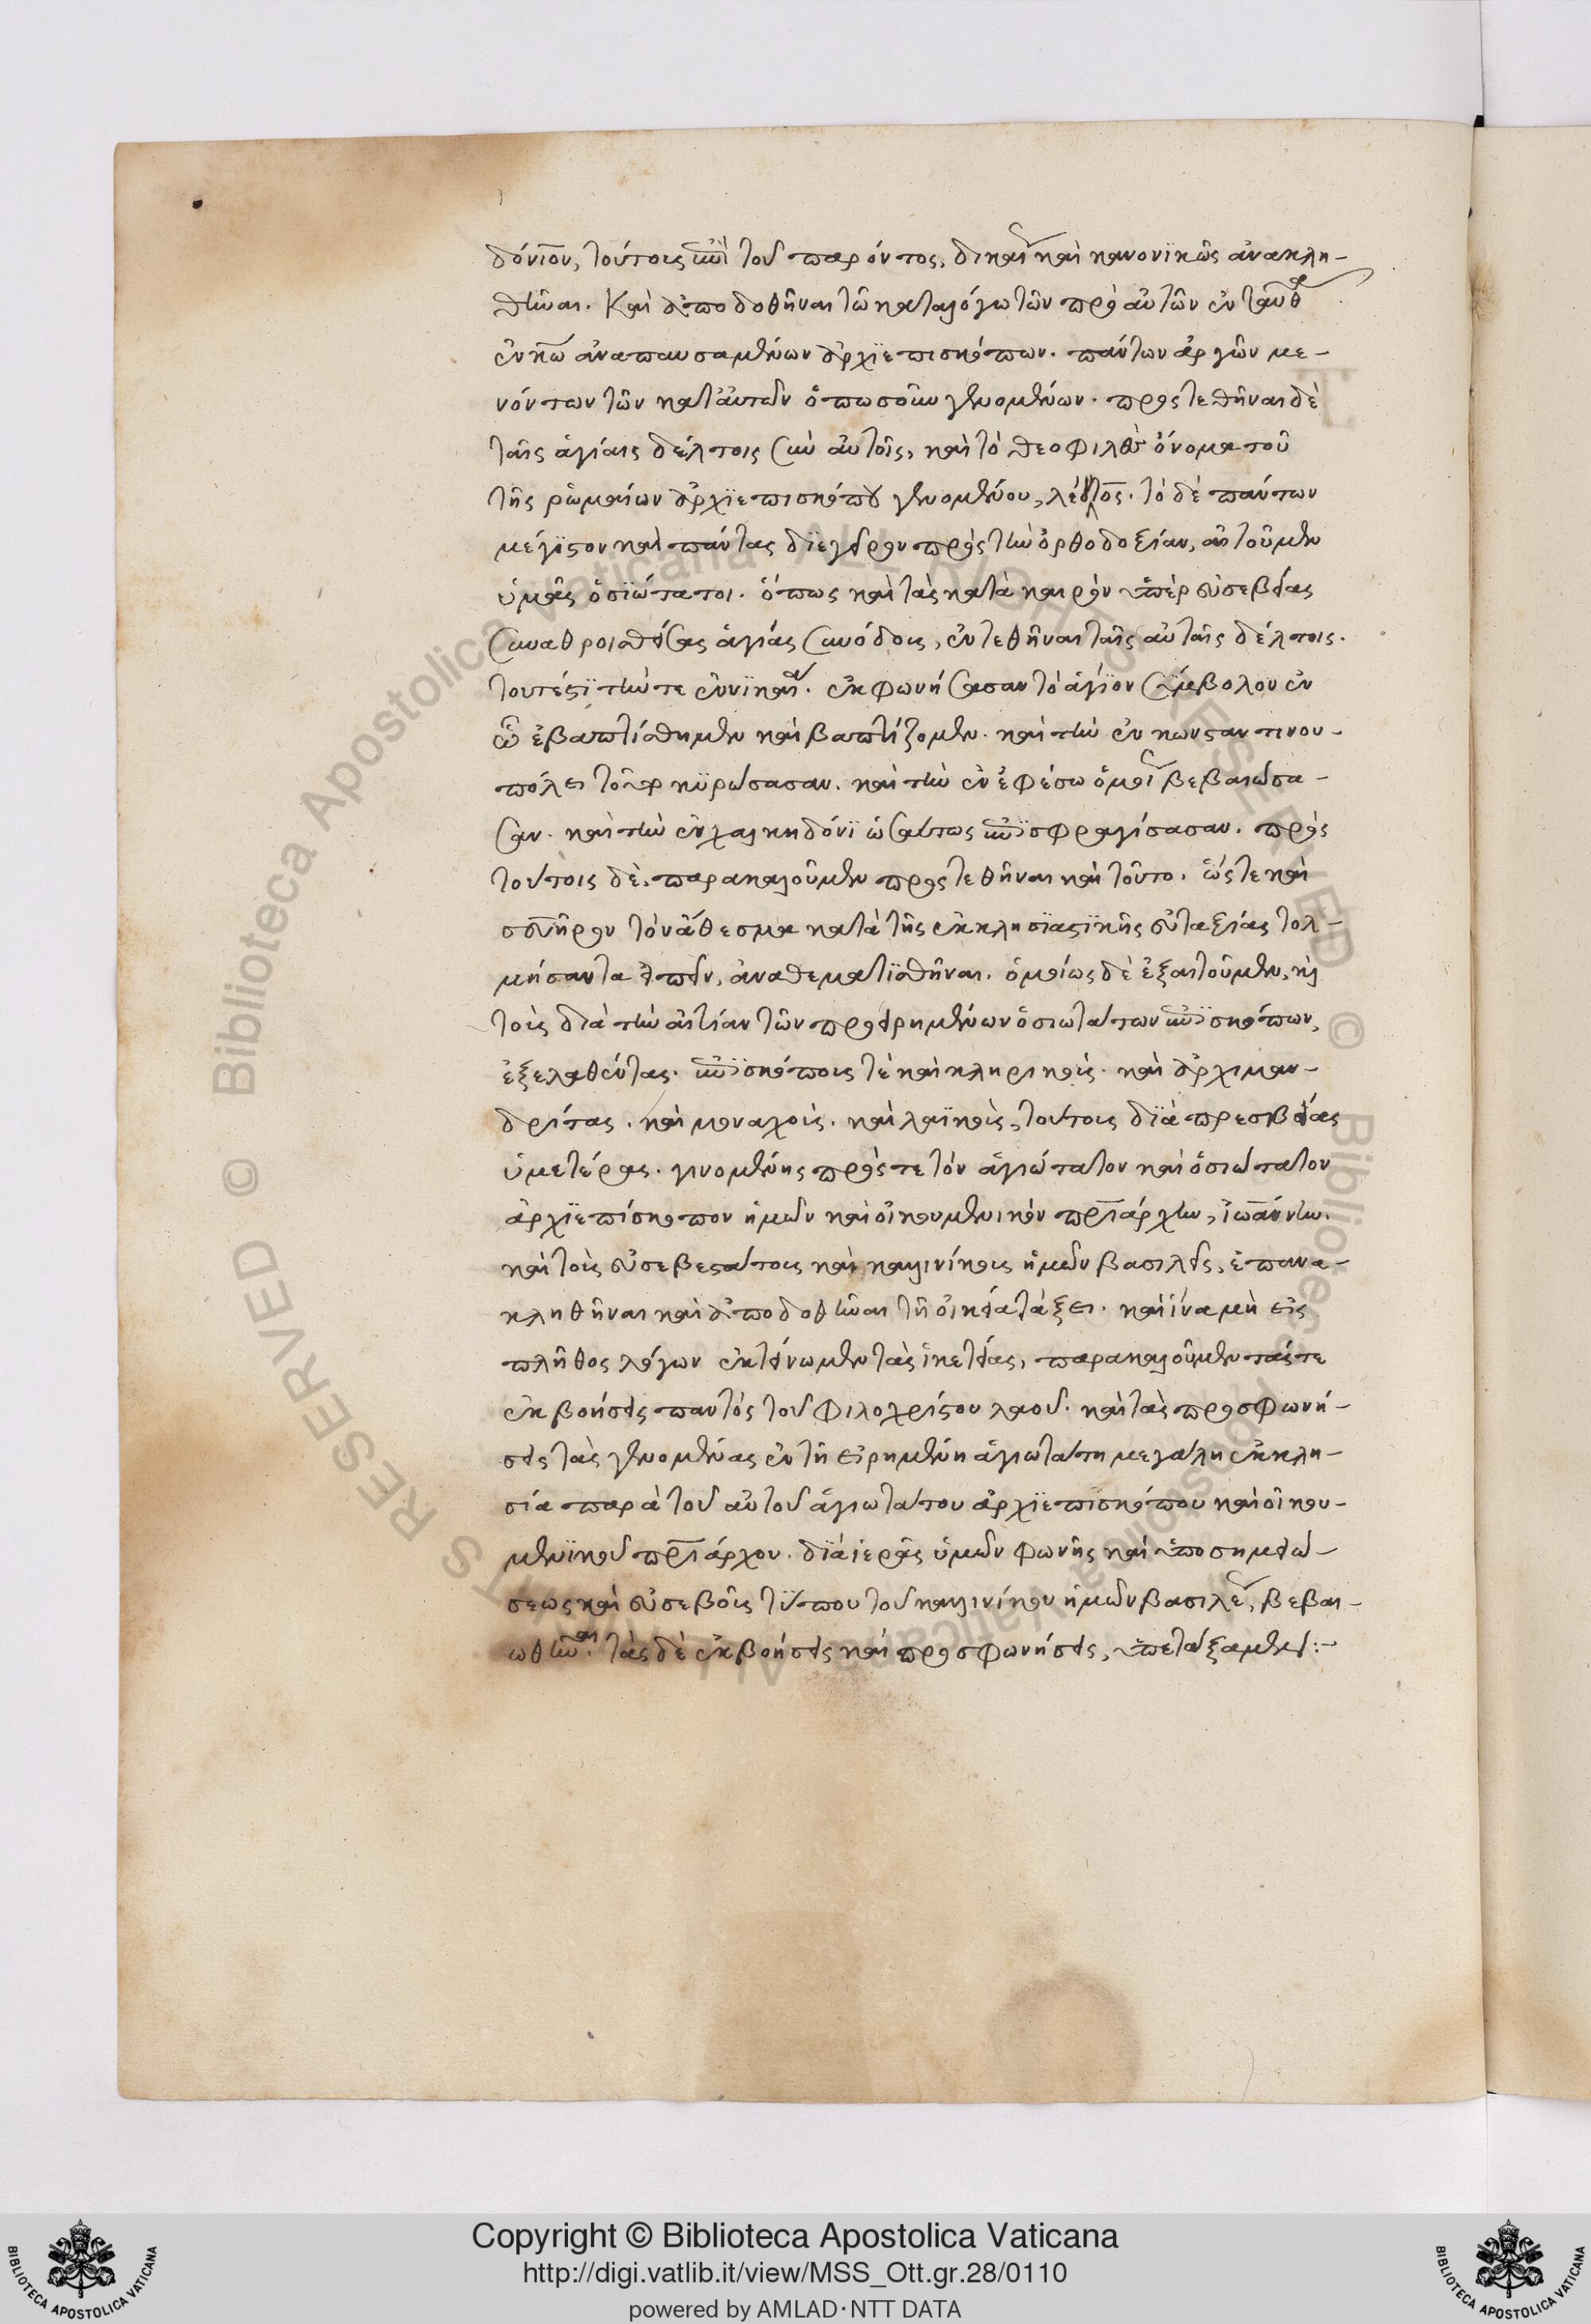 δόνιον, τούτους ἐπὶ τοῦ παρόντος, δικαίως καὶ κανονϊκῶς ἀνακλη-
θῆναι. Καὶ ἀποδοθῆναι τῶ καταλόγω τῶν πρὸ αὐτῶν ἐνταῦθα
ἐν κω ἀναπαυσαμένων ἀρχϊεπισκόπων. πάντων ἀργῶν με-
νόντων τῶν κατ' αὐτῶν ὁπωσοῦν γενομένων. προςτεθῆναι δὲ
ταῖς ἁγίαις δέλτοις σὺν αὐτοῖς, καὶ τὸ θεοφιλὲς ὄνομα τοῦ
τῆς ρὡμαίων ἀρχϊεπισκόπου γενομένου, λέοντος. τὸ δὲ πάντων
μέγϊστον καὶ πάντας δϊεγεῖρον πρὸς τὴν ὀρθοδοξίαν, αἰτοῦμεν
ὑμᾶς ὁσϊώτατοι. ὅπως καὶ τὰς κατὰ καιρὸν ὑπὲρ εὐσεβείας
συναθροισθείσας ἁγίας συνόδους, ἐντεθῆναι ταῖς αὐταῖς δέλτοις.
τουτέστϊ τήν τε ἐν νϊκαία. ἐκφωνήσασαν τὸ ἅγϊον σύμβολον ἐν
ὧ ἐβαπτίσθημεν καὶ βαπτίζομεν. καὶ τὴν ἐν κωνσταντινου-
πόλει τοῦτο κϋρώσασαν. καὶ τὴν ἐν ἐφέσω ὁμοίως βεβαιώσα-
σαν. καὶ τὴν ἐν χαλκηδόνϊ ὡσαύτως ἐπϊσφραγίσασαν. πρὸς
τούτοις δὲ, παρακαλοῦμεν προςτεθῆναι καὶ τοῦτο. ὥςτε καὶ
σευῆρον τὸν ἄθεσμα κατὰ τῆς ἐκκλησϊαστϊκῆς εὐταξίας τολ-
μήσαντα εἰπεῖν, ἀναθεματϊσθῆναι. ὁμοίως δὲ ἐξαιτοῦμεν, καὶ
τοὺς διὰ τὴν αἰτίαν τῶν προειρημένων ὁσιωτάτων ἐπϊσκόπων,
ἐξελαθέντας. ἐπϊσκόπους τὲ καὶ κληρικοὺς. καὶ ἀρχιμαν-
δρίτας. καὶ μοναχοὺς. καὶ λαϊκοὺς, τούτους δϊὰ πρεσβείας
ὑμετέρας. γινομένης πρός τε τὸν ἁγιώτατον καὶ ὁσιώτατον
ἀρχϊεπίσκοπον ἡμῶν καὶ οἰκουμενικὸν πριάρχην, ἰωάννην.
καὶ τοὺς εὐσεβεστάτους καὶ καλλινίκους ἡμῶν βασιλεῖς, ἐπανα-
κληθῆναι καὶ ἀποδοθῆναι τῆ οἰκεία τάξει. καὶ ἵνα μὴ εἰς
πλῆθος λόγων ἐκτείνωμεν τὰς ἱκετείας, παρακαλοῦμεν τάς τε
ἐκβοήσεις παντὸς τοῦ φιλοχρίστου λαοῦ. καὶ τὰς προσφωνή-
σεις τὰς γενομένας ἐν τῆ εἰρημένη ἁγιωτάτη μεγάλη ἐκκλη-
σία παρὰ τοῦ αὐτοῦ ἁγιωτάτου ἀρχϊεπϊσκόπου καὶ οἰκου-
μενϊκοῦ πριάρχου. δϊὰ ἱερᾶς ὑμῶν φωνῆς καὶ ὑποσημειώ-
σεως καὶ εὐσεβοῦς τύπου τοῦ καλλινίκου ἡμῶν βασιλέως, βεβαι-
ωθῆναι. τὰς δὲ ἐκβοήσεις καὶ προσφωνήσεις, ὑπετάξαμεν:-
Copyright © Biblioteca Apostolica Vaticana
http://digi.vatlib.it/view/MSS_Ott.gr.28/0110
powered by AMLAD·NTT DATA